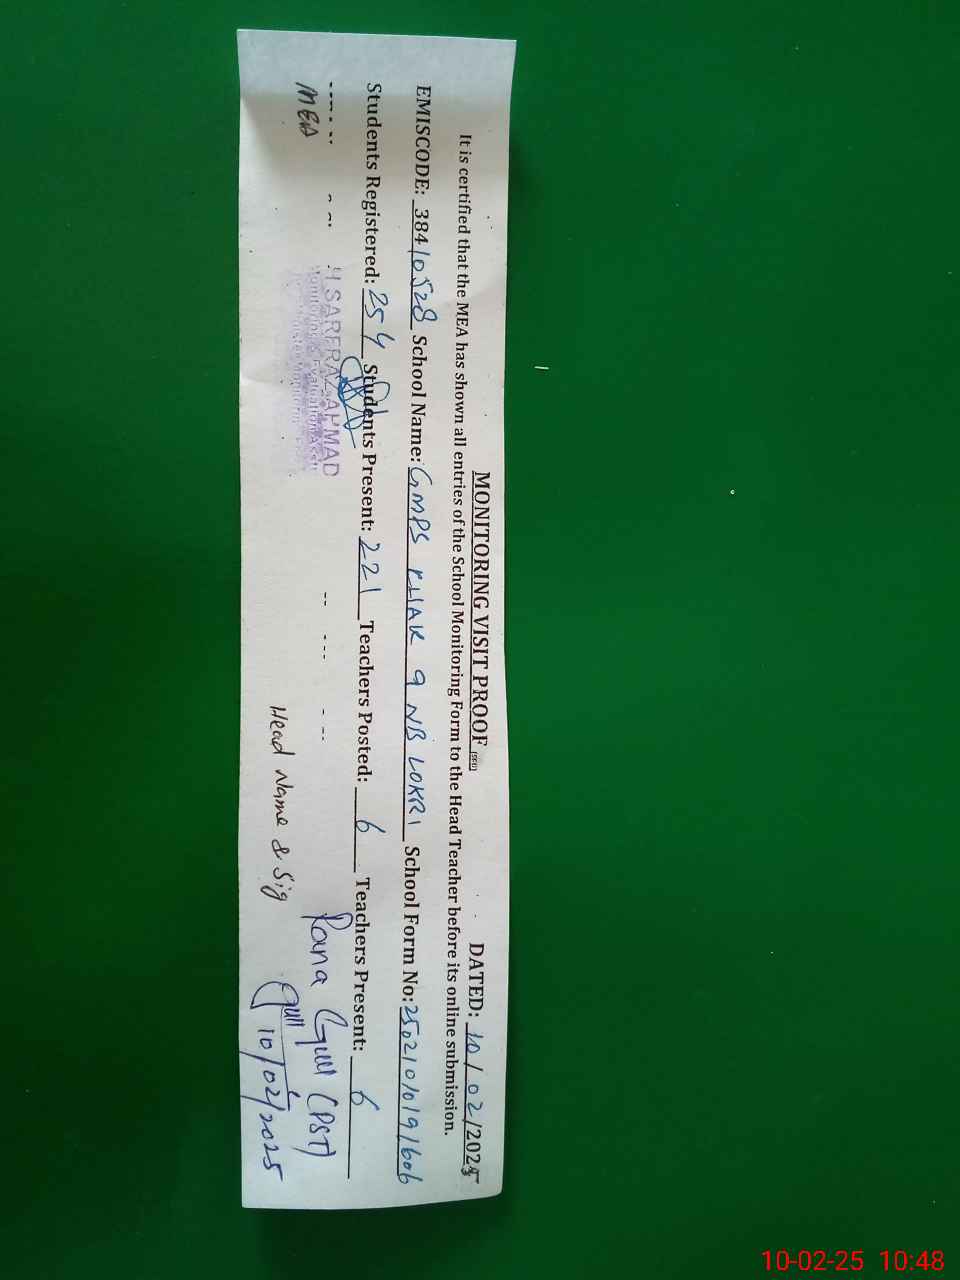 MONITORING VISIT PROOF (SFU) DATED: 10/02/2025
It is certified that the MEA has shown all entries of the School Monitoring Form to the Head Teacher before its online submission.
EMISCODE: 38410528 School Name: GMPS CHAK 9 NB LOKRI School Form No: 25021010191606
Students Registered: 254 Students Present: 221 Teachers Posted: 6 Teachers Present: 6
MEA
SARFRAZ AHMAD
Monitoring & Evaluation
Head Name & Sig
Rana Gull (PST)
Gull
10/02/2025
10-02-25 10:48